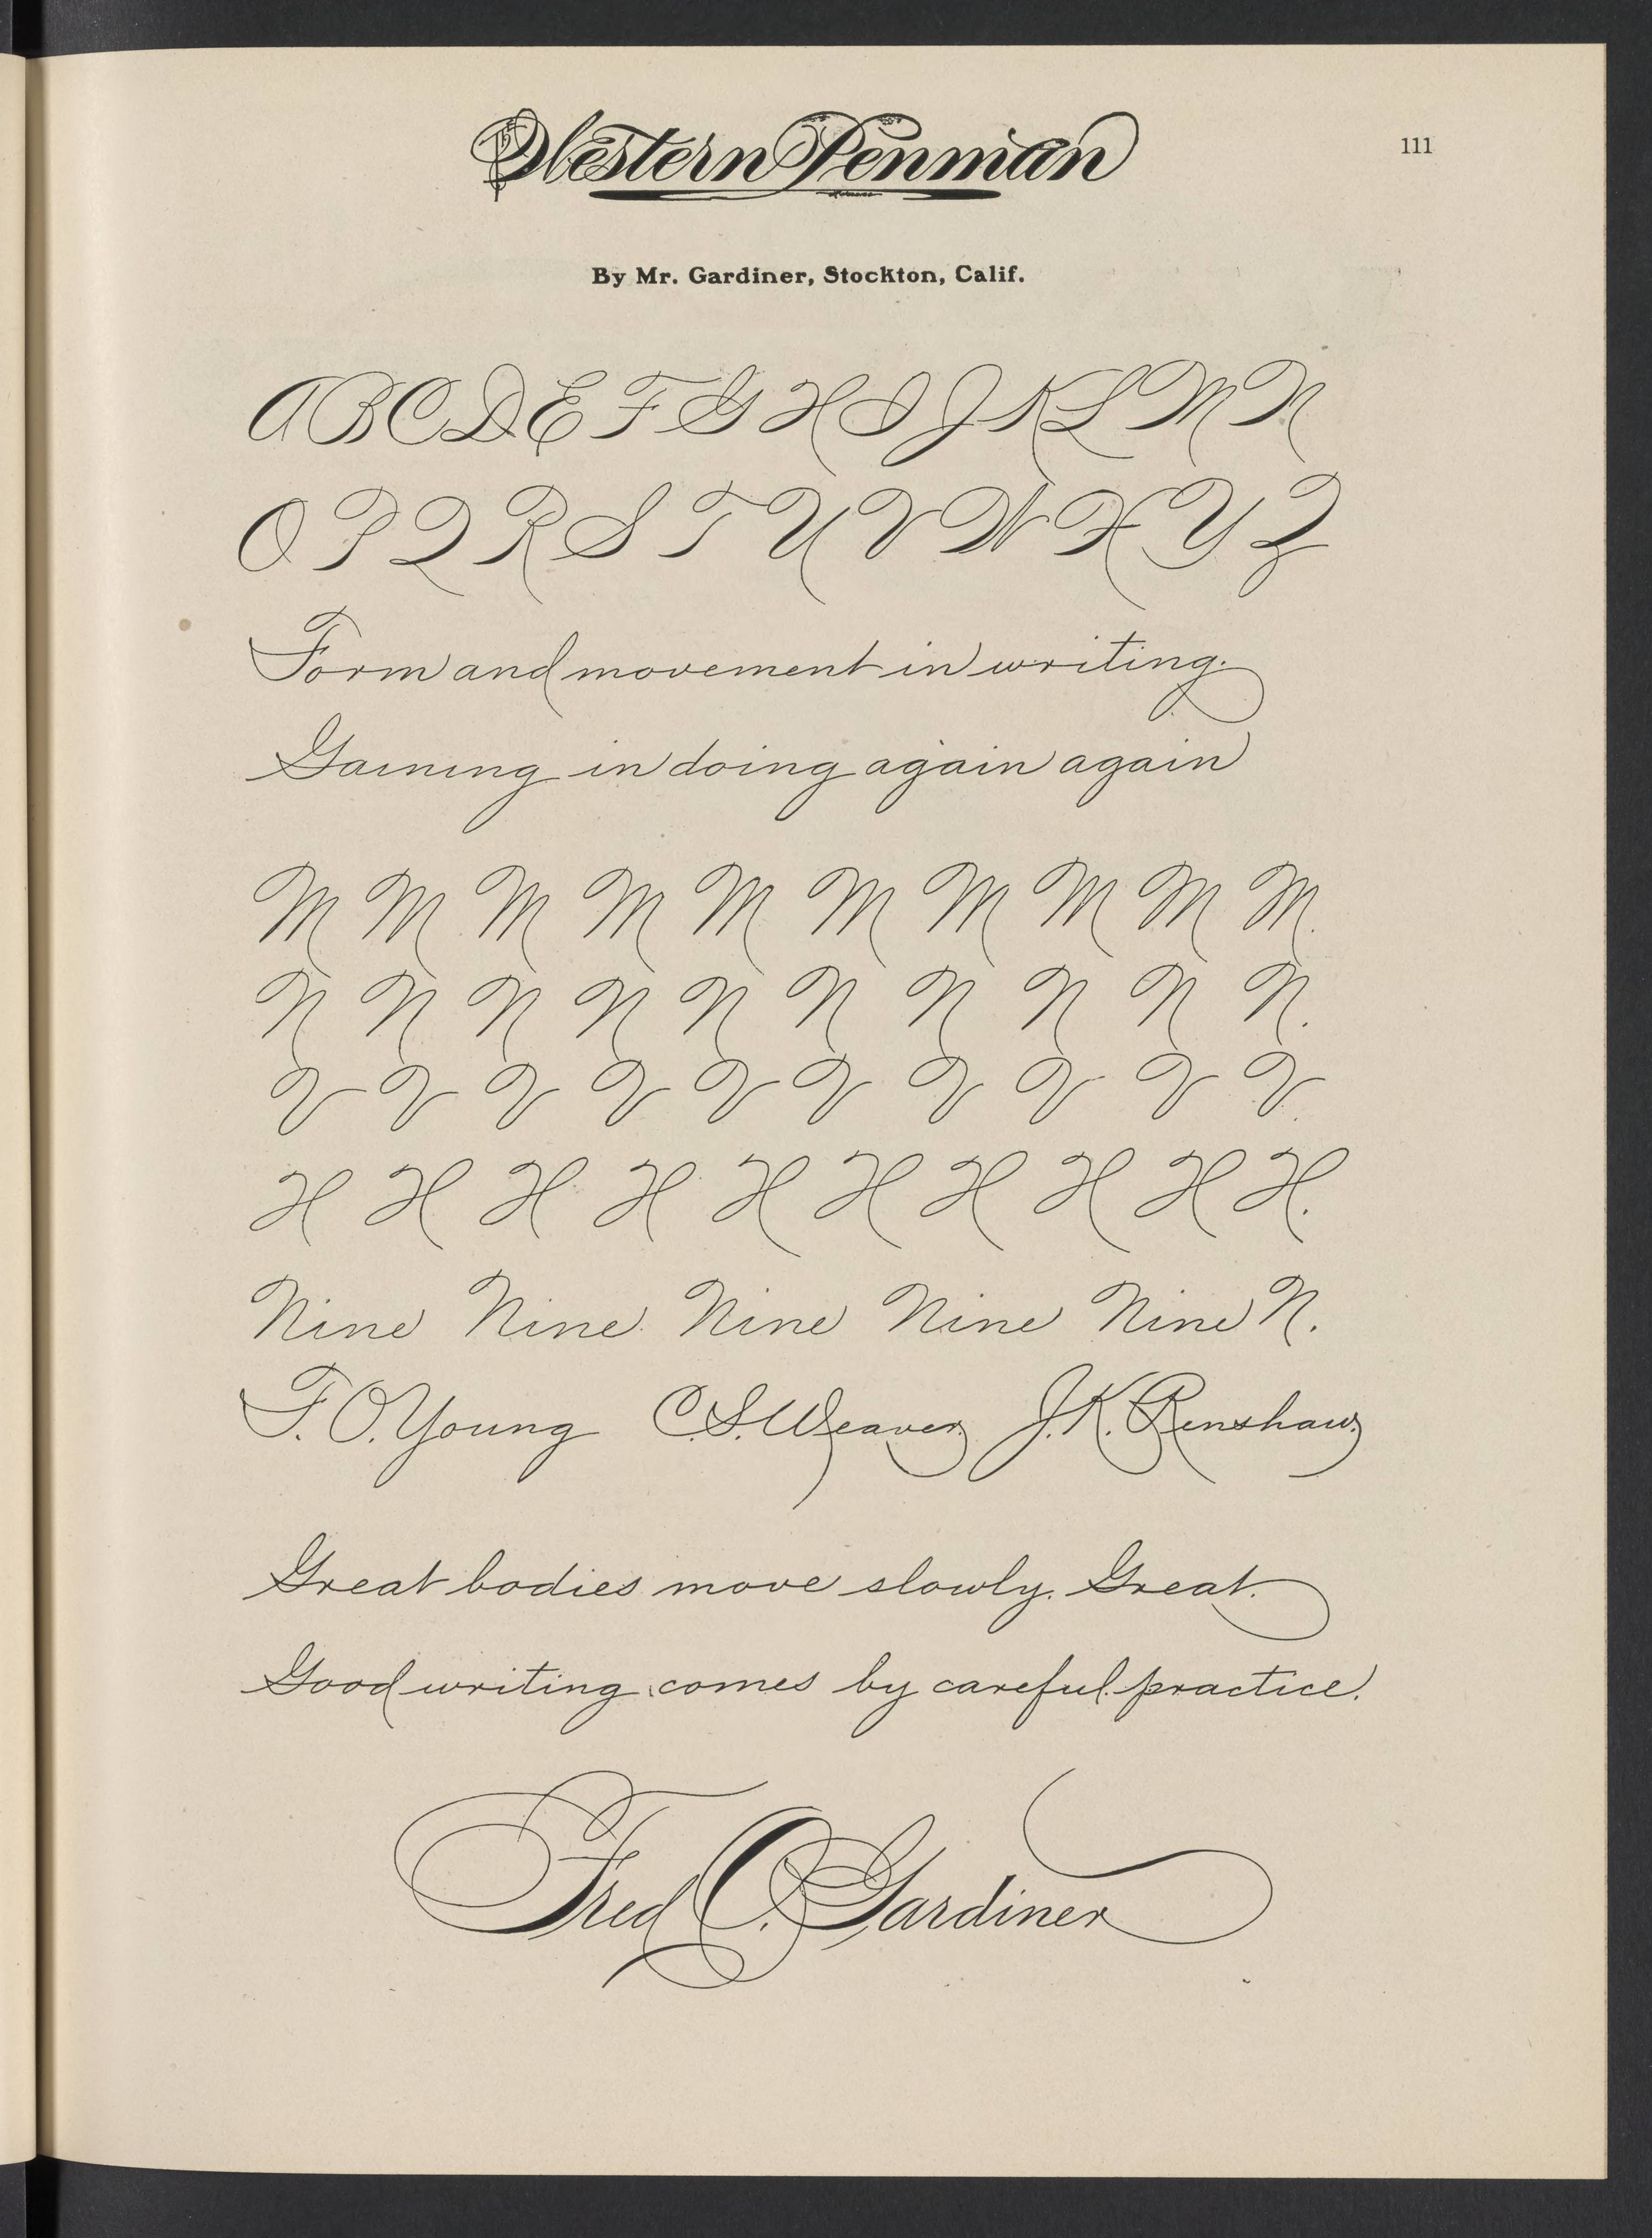 The Western Penman
111
By Mr. Gardiner, Stockton, Calif.
A B C D E F G H I J K L M N
O P Q R S T U V W X Y Z
Form and movement in writing.
Gaining in doing again again
M M M M M M M M M M.
N N N N N N N N N N.
V V V V V V V V V V.
H H H H H H H H H H.
Nine Nine Nine Nine Nine N.
F. O. Young C. S. Weaver. J. K. Renshaw.
Great bodies move slowly. Great.
Good writing comes by careful practice.
Fred O. Gardiner